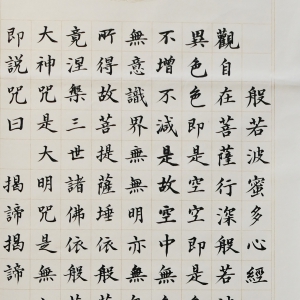 般若波蜜多心經
觀自在菩薩行深般若波
異色色即是空空即是
不增不減是故空中無
無意識界無無明亦無
所得故菩提薩埵依般
竟涅槃三世諸佛依般
大神咒是大明咒是無
即說咒曰 揭諦揭諦